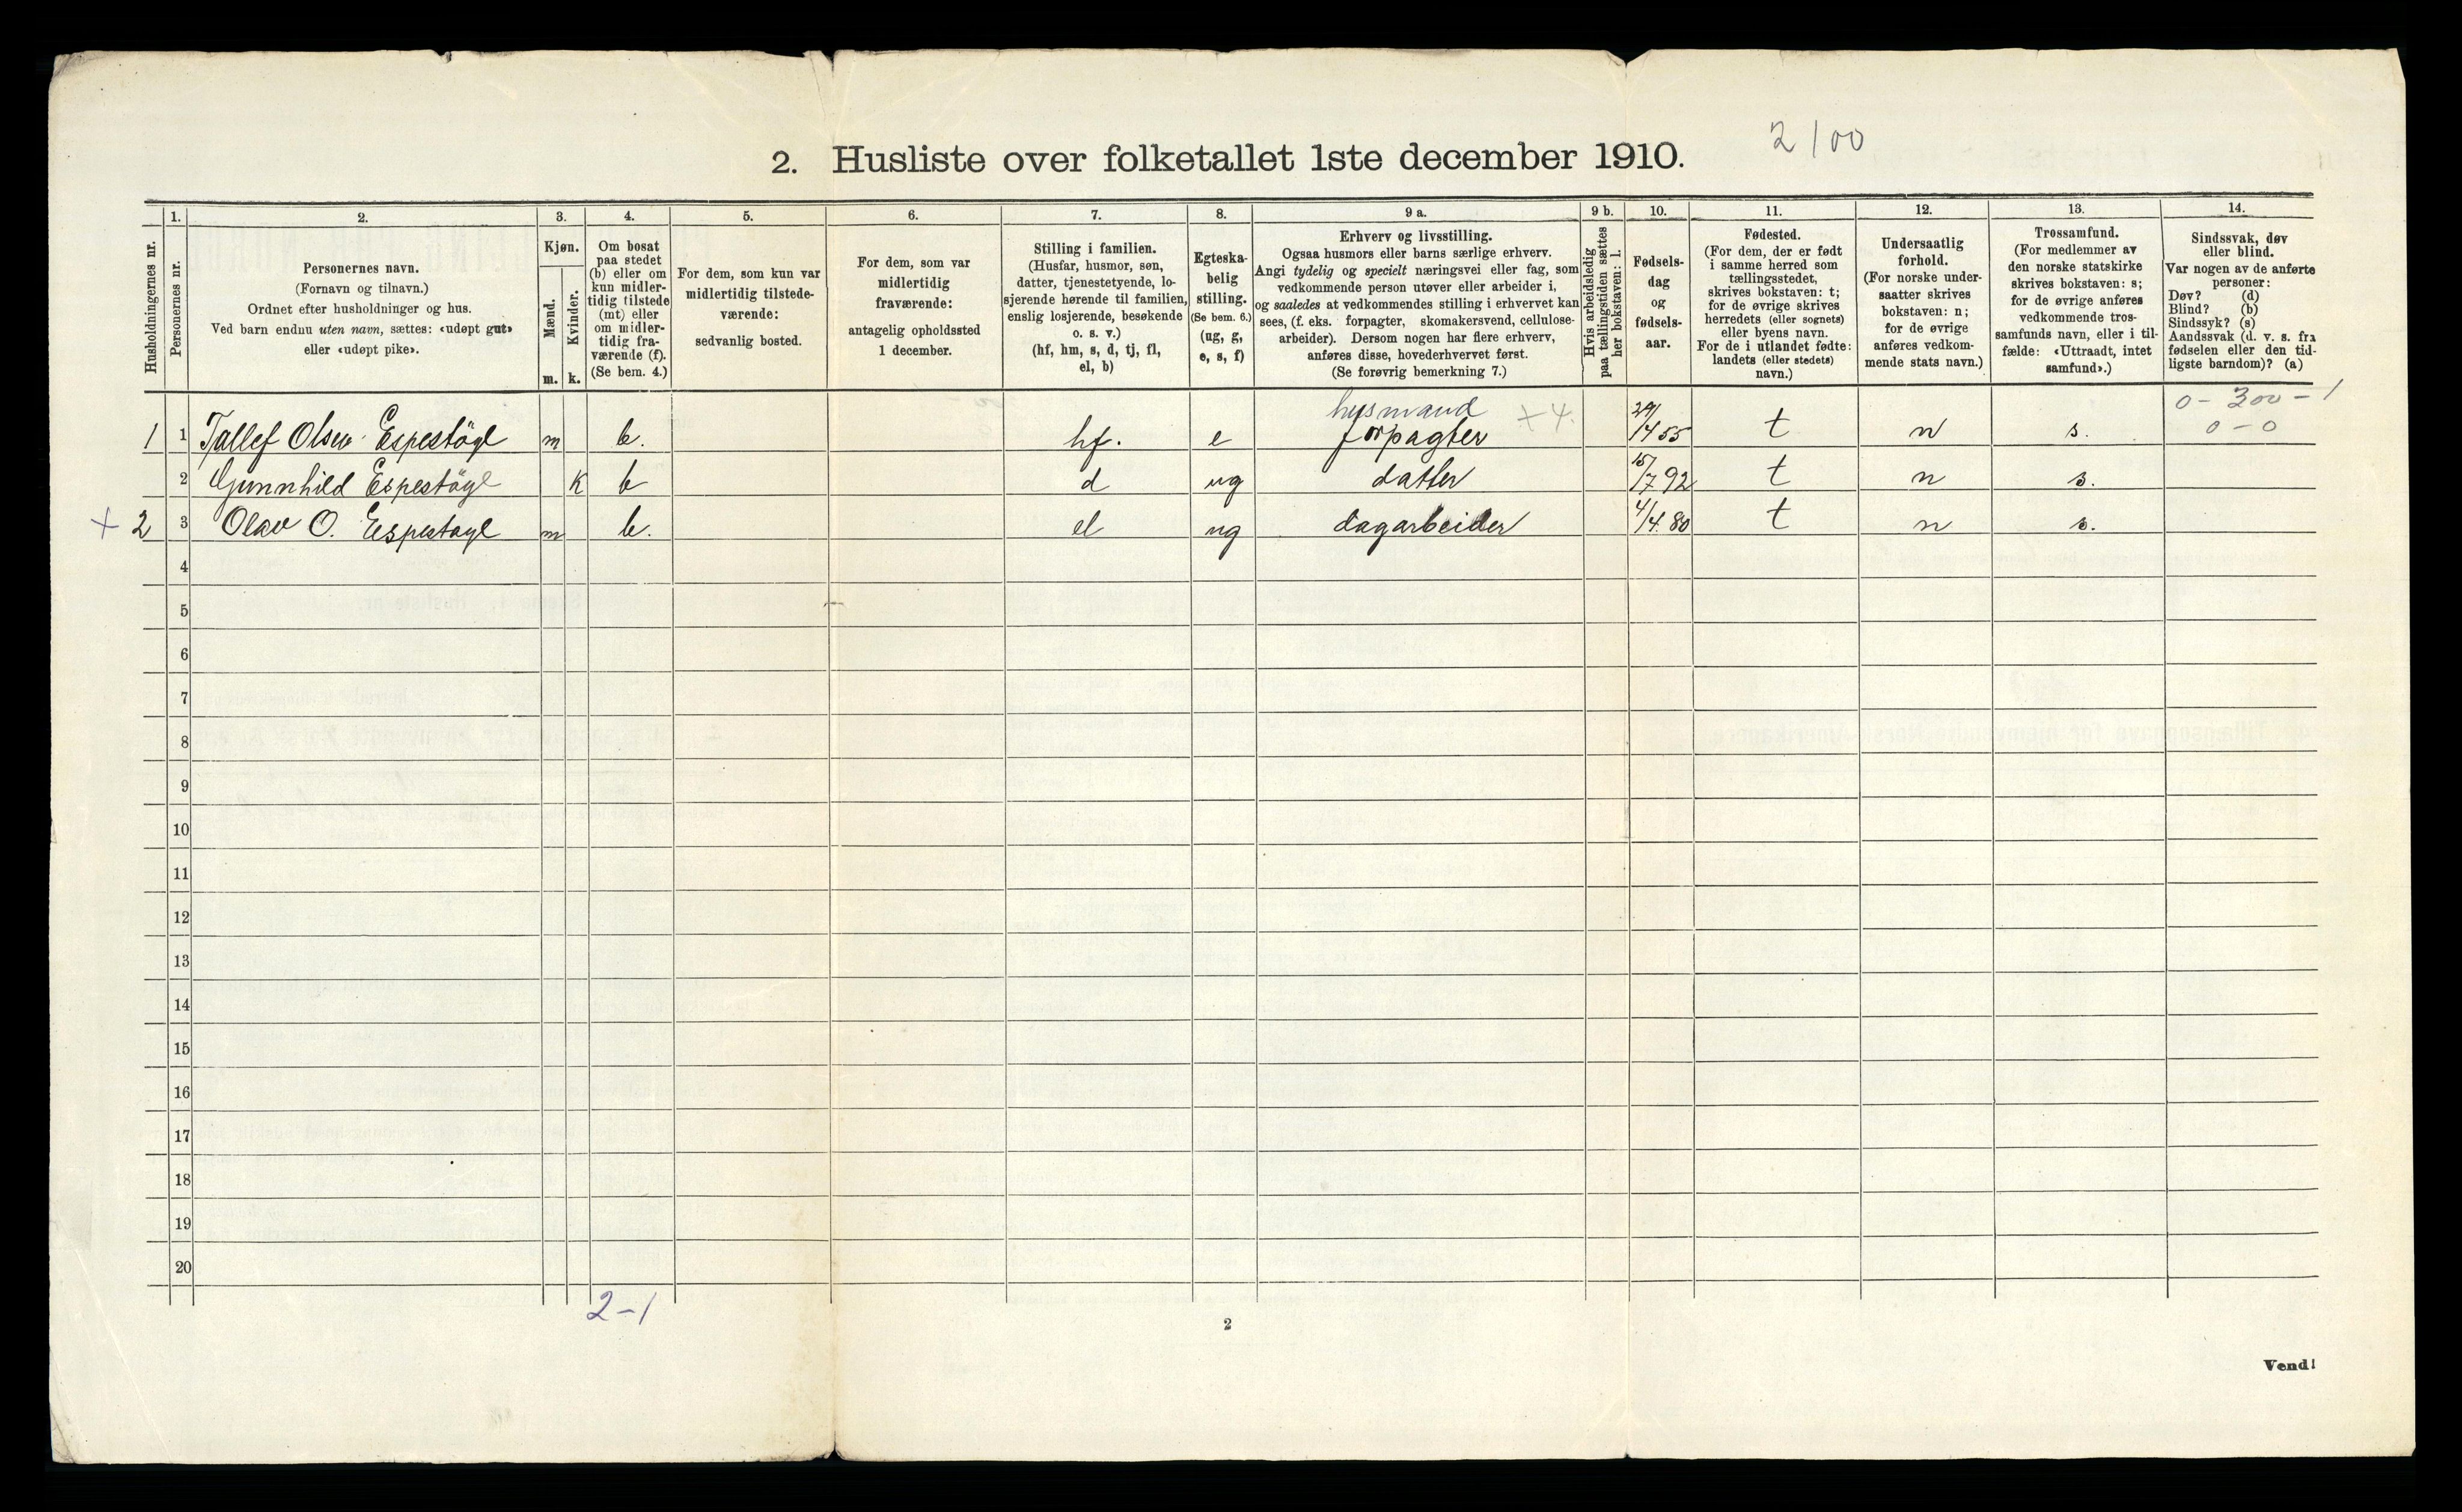 2. Husliste over folketallet 1ste december 1910.
2/00
Husholdningernes nr.
1.
Personernes nr.
2.
Personernes navn.
(Fornavn og tilnavn.)
Ordnet efter husholdninger og hus.
Ved barn endnu uten navn, sættes: «udøpt gut»
eller «udøpt pike».
3.
Kjøn.
Mænd.
m.
Kvinder.
k.
4.
Om bosat
paa stedet
(b) eller om
kun midler-
tidig tilstede
(mt) eller
om midler-
tidig fra-
værende (f).
(Se bem. 4.)
5.
For dem, som kun var
midlertidig tilstede-
værende:
sedvanlig bosted.
6.
For dem, som var
midlertidig
fraværende:
antagelig opholdssted
1 december.
7.
Stilling i familien.
(Husfar, husmor, søn,
datter, tjenestetyende, lo-
sjerende hørende til familien,
enslig losjerende, besøkende
o. s. v.)
(hf, hm, s, d, tj, fl,
el, b)
8.
Egteska-
belig
stilling.
(Se bem. 6.)
(ug, g,
e, s, f)
9 a.
Erhverv og livsstilling.
Ogsaa husmors eller barns særlige erhverv.
Angi tydelig og specielt næringsvei eller fag, som
vedkommende person utøver eller arbeider i,
og saaledes at vedkommendes stilling i erhvervet kan
sees, (f. eks. forpagter, skomakersvend, cellulose-
arbeider). Dersom nogen har flere erhverv,
anføres disse, hovederhvervet først.
(Se forøvrig bemerkning 7.)
9 b.
Hvis arbeidsledig
paa tællingstiden sættes
her bokstaven: l.
10.
Fødsels-
dag
og
fødsels-
aar.
11.
Fødested.
(For dem, der er født
i samme herred som
tællingsstedet,
skrives bokstaven: t;
for de øvrige skrives
herredets (eller sognets)
eller byens navn.
For de i utlandet fødte:
landets (eller stedets)
navn.)
12.
Undersaatlig
forhold.
(For norske under-
saatter skrives
bokstaven: n;
for de øvrige
anføres vedkom-
mende stats navn.)
13.
Trossamfund.
(For medlemmer av
den norske statskirke
skrives bokstaven: s;
for de øvrige anføres
vedkommende tros-
samfunds navn, eller i til-
fælde: «Uttraadt, intet
samfund».)
14.
Sindssvak, døv
eller blind.
Var nogen av de anførte
personer:
Døv? (d)
Blind? (b)
Sindssyk? (s)
Aandssvak (d. v. s. fra
fødselen eller den tid-
ligste barndom)? (a)
husmand + 4. 0 - 300 - 1
1 1 Tallef Olsen Espestøyl m b. hf. e forpagter 29/4 55 t n s. 0 - 0
2 Gunnhild Espestøyl k b d ug datter 15/7 92 t n s.
+ 2 3 Olav O. Espestøyl m b. el ug dagarbeider 4/4. 80 t n s.
4
5
6
7
8
9
10
11
12
13
14
15
16
17
18
19
20
2 - 1
2
Vend!